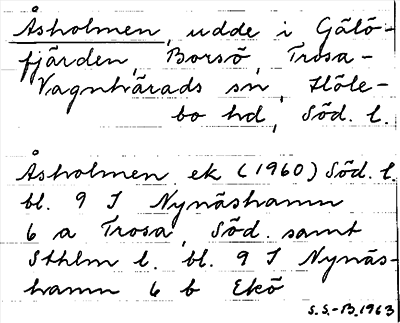 Åsholmen, udde i Gälö-
fjärden, Borsö, Trosa-
Vagnhärads sn, Höle-
bo hd, Söd. l.
Åsholmen ek (1960) Söd. l.
bl. 9 I Nynäshamn
6 a Trosa, Söd. samt
Sthlm l. bl. 9 I Nynäs-
hamn 6 b Ekö
S.S.-B. 1963